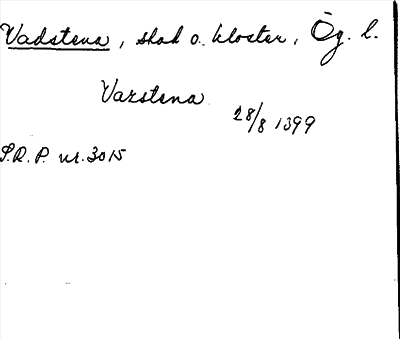 Vadstena, stad o. kloster, Ög. l.
Varstena
28/8 1399
S.R.P. nr. 3015